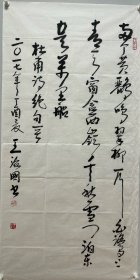 两个黄鹂鸣翠柳一行白鹭上
青天窗含西岭千秋雪门泊东
吴萬里船
杜甫诗绝句一首
二〇一七年丁酉夏王國书